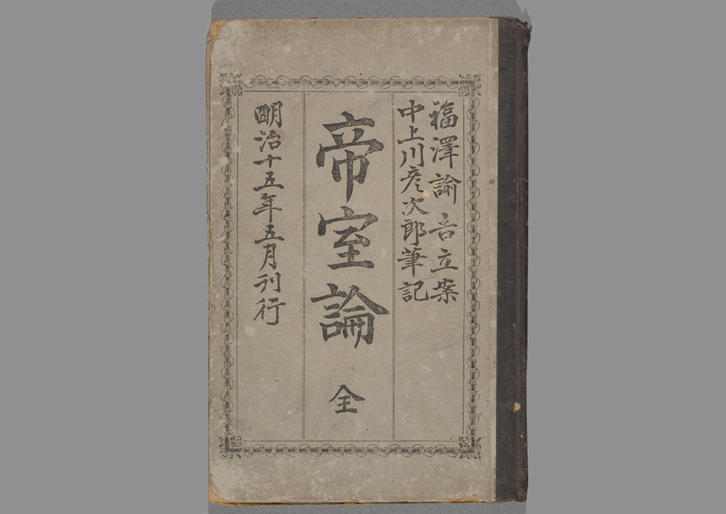 福澤諭吉立案
中上川彦次郎筆記
帝室論
全
明治十五年五月刊行